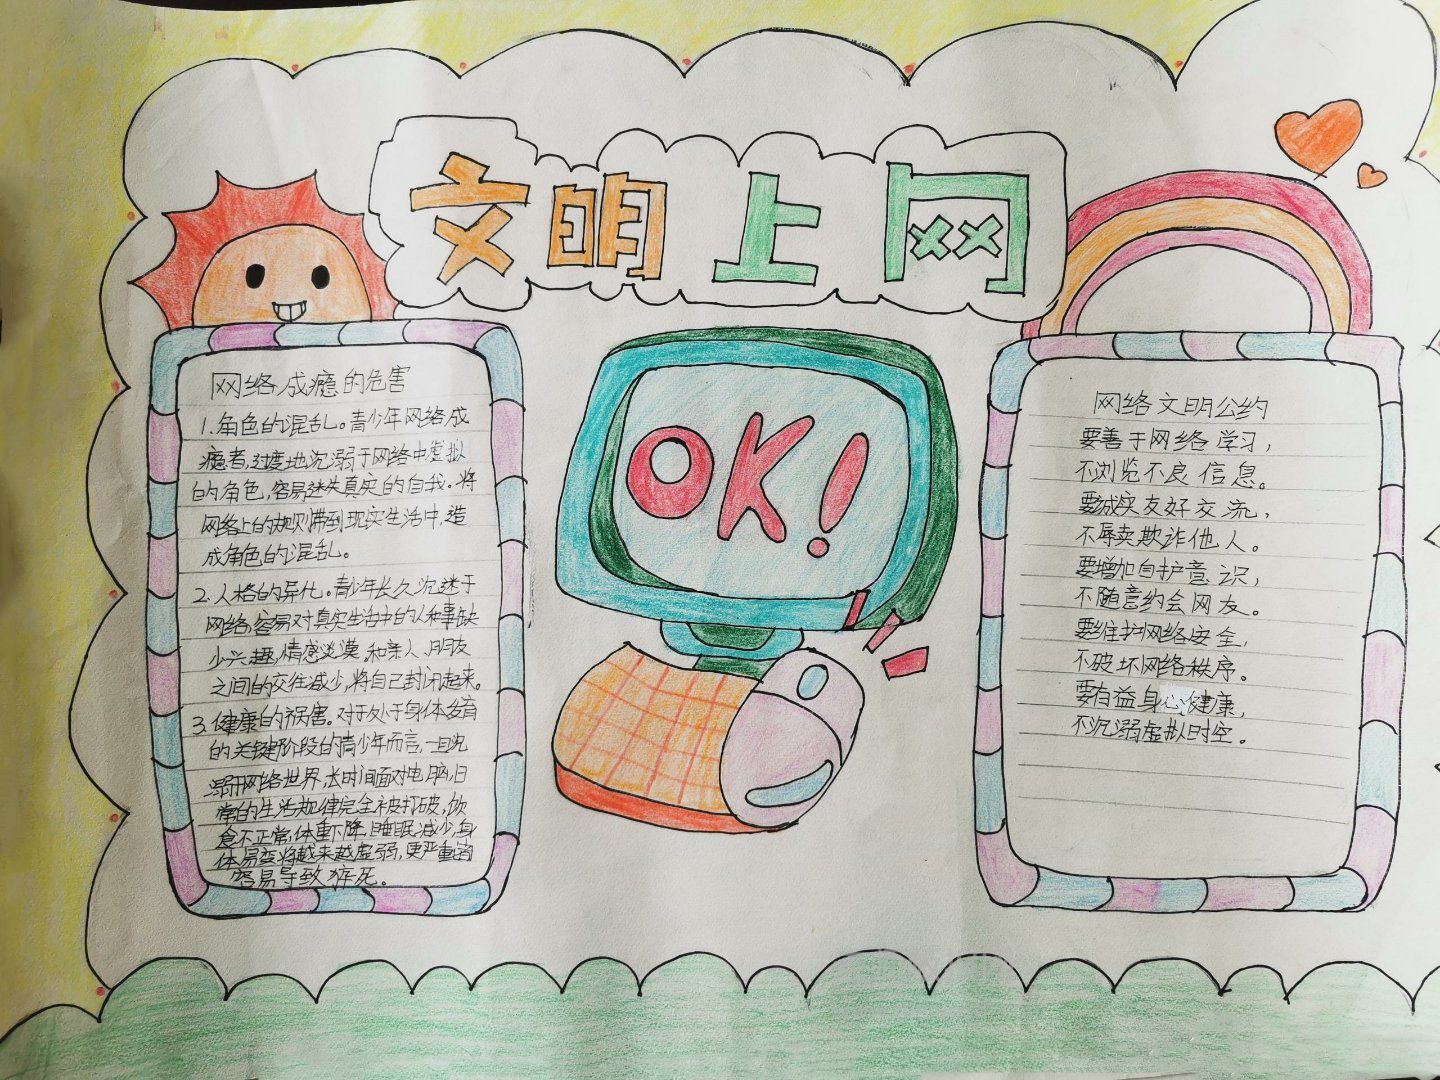 文明上网
网络成瘾的危害
1.角色的混乱。青少年网络成
瘾者,过度地沉溺于网络中虚拟
的角色,容易迷失真实的自我。将
网络上的规则带到现实生活中,造
成角色的混乱。
2.人格的异化。青少年长久沉迷于
网络,容易对真实生活中的人和事缺
少兴趣,情感淡漠,和亲人、朋友
之间的交往减少,将自己封闭起来。
3.健康的祸害。对于处于身体发育
的关键阶段的青少年而言,一旦沉
溺于网络世界,长时间面对电脑,日
常的生活规律完全被打破,饮
食不正常,体重下降,睡眠减少,身
体易变将越来越虚弱,更严重的
容易导致猝死。
OK!
网络文明公约
要善于网络学习,
不浏览不良信息。
要诚实友好交流,
不辱卖欺诈他人。
要增加自护意识,
不随意约会网友。
要维护网络安全,
不破坏网络秩序。
要有益身心健康,
不沉溺虚拟时空。